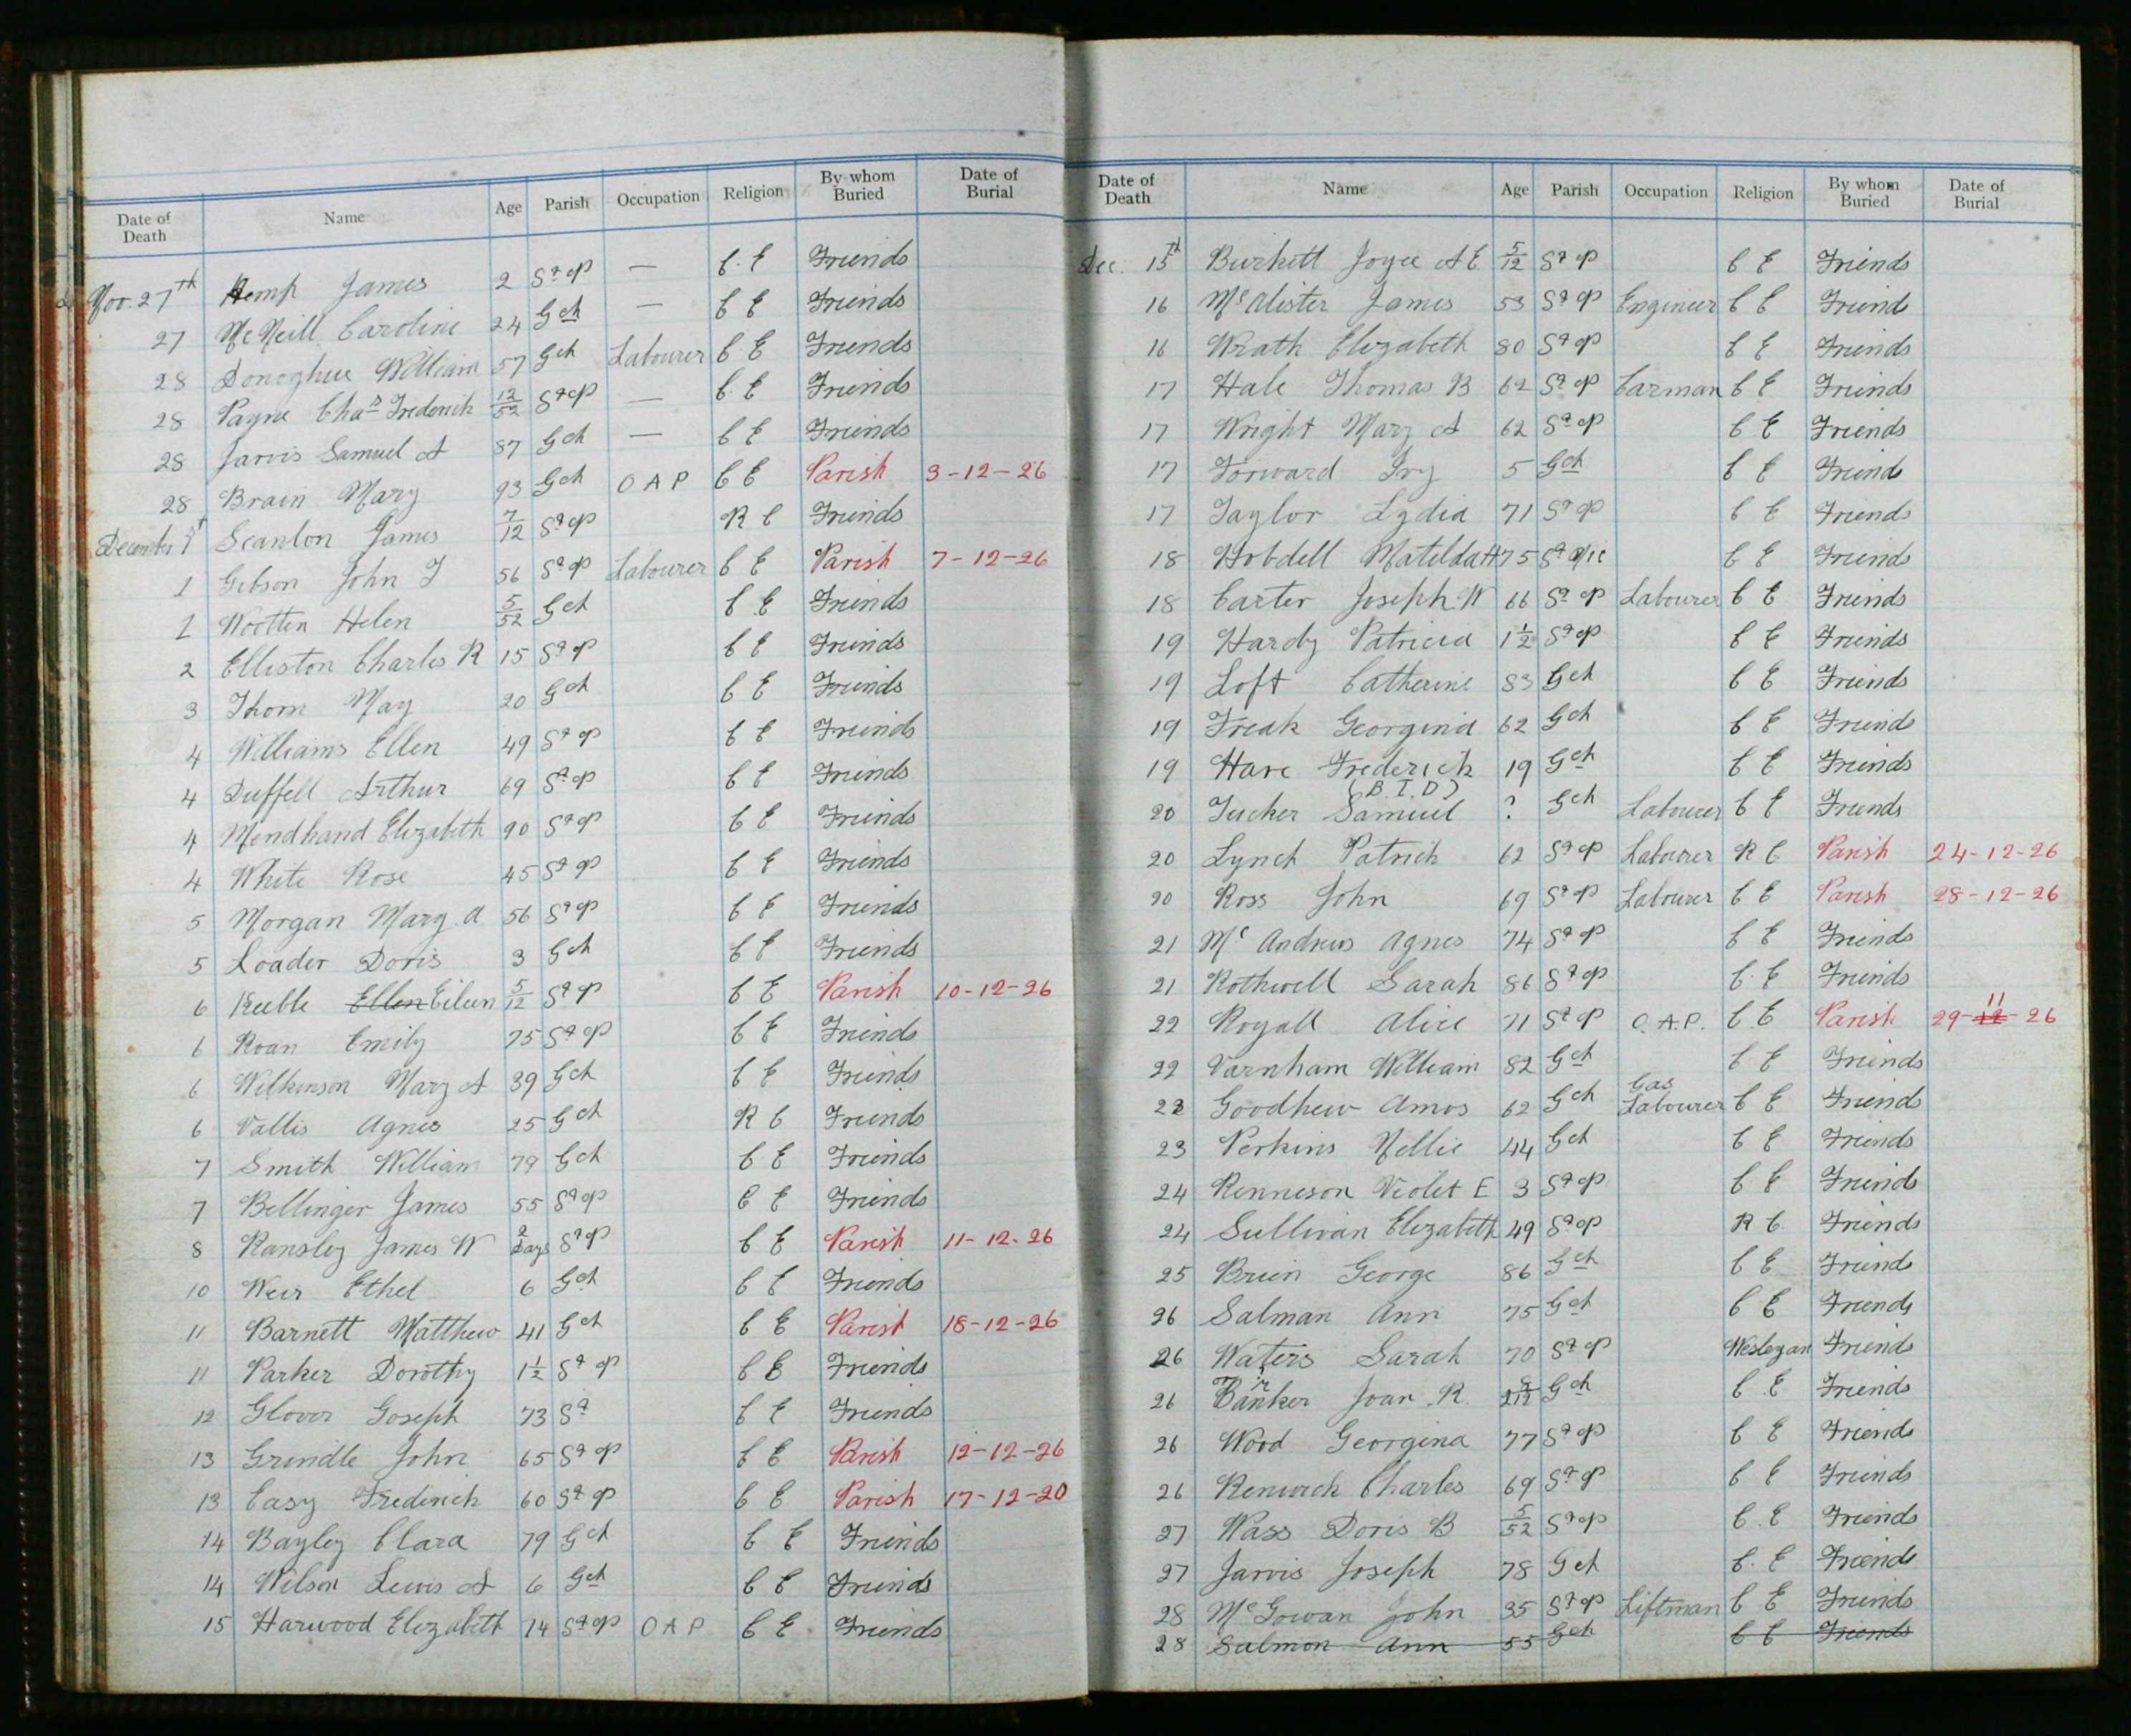 Date of Death Name Age Parish Occupation Religion By whom Buried Date of Burial
Nov. 27th Kemp James 2 St P — C. E Friends
27 McNeill Caroline 24 Gch — C E Friends
28 Donoghue William 57 Gch Labourer C E Friends
28 Payne Chas Frederick 12/52 St P — C E Friends
28 Jarvis Samuel A 87 Gch — C E Friends
28 Brain Mary 93 Gch O A P C E Parish 3-12-26
December 1st Scanlon James 7/12 St P R C Friends
1 Gibson John T 56 St P Labourer C E Parish 7-12-26
1 Wootten Helen 5/52 Gch C E Friends
2 Elliston Charles R 15 St P C E Friends
3 Thorn May 20 Gch C E Friends
4 Williams Ellen 49 St P C E Friends
4 Duffell Arthur 69 St P C E Friends
4 Mendhand Elizabeth 90 St P C E Friends
4 White Rose 45 St P C E Friends
5 Morgan Mary A 56 St P C E Friends
5 Loader Doris 3 Gch C E Friends
6 Keeble Ellen Eileen 5/12 St P C E Parish 10-12-26
6 Roan Emily 75 St P C E Friends
6 Wilkinson Mary A 39 Gch C E Friends
6 Vallis Agnes 25 Gch R C Friends
7 Smith William 79 Gch C E Friends
7 Bellinger James 55 St P C E Friends
8 Ransley James W 2 Days St P C E Parish 11-12-26
10 Weir Ethel 6 Gch C E Friends
11 Barnett Matthew 41 Gch C E Parish 18-12-26
11 Parker Dorothy 1½ St P C E Friends
12 Glover Goseph 73 St C E Friends
13 Grindle John 65 St P C E Parish 12-12-26
13 Casy Frederick 60 St P C E Parish 17-12-20
14 Bayley Clara 79 Gch C E Friends
14 Wilson Lewis A 6 Gch C E Friends
15 Harwood Elizabeth 74 St P O A P C E Friends
Date of Death Name Age Parish Occupation Religion By whom Buried Date of Burial
Dec. 15th Burkett Joyce A E 5/12 St P C E Friends
16 McAlister James 53 St P Engineer C E Friends
16 Wrath Elizabeth 80 St P C E Friends
17 Hale Thomas B 62 St P Carman C E Friends
17 Wright Mary A 62 St P C E Friends
17 Forward Ivy 5 Gch C E Friends
17 Taylor Lydia 71 St P C E Friends
18 Hobdell Matilda H 75 St Nic C E Friends
18 Carter Joseph W 66 St P Labourer C E Friends
19 Hardy Patricia 1½ St P C E Friends
19 Loft Catherine 83 Gch C E Friends
19 Freak Georgina 62 Gch C E Friends
19 Hare Frederick 19 Gch C E Friends
(B. I. D)
20 Tucker Samuel ? Gch Labourer C E Friends
20 Lynch Patrick 62 St P Labourer R C Parish 24-12-26
20 Ross John 69 St P Labourer C E Parish 28-12-26
21 Mc Andrews Agnes 74 St P C E Friends
21 Rothwell Sarah 86 St P C. E Friends
22 Royall Alice 71 St P O. A. P. C E Parish 29-12 11-26
22 Varnham William 82 Gch C E Friends
23 Goodhew Amos 62 Gch Gas Labourer C E Friends
23 Perkins Nellie 44 Gch C E Friends
24 Renneson Violet E 3 St P C E Friends
24 Sullivan Elizabeth 49 St P R C. Friends
25 Bruin George 86 Gch C E Friends
26 Salman Ann 75 Gch C E Friends
26 Waters Sarah 70 St P Wesleyan Friends
26 Joan. R. Gch C. E Friends
26 Wood Georgina 77 St P C E Friends
26 Renwick Charles 69 St P C E Friends
27 Wass Doris B 5/52 St P C. E Friends
27 Jarvis Joseph 78 Gch C. E Friends
28 McGowan John 35 St P Liftman C E Friends
28 Salmon Ann 55 Gch C E Friends